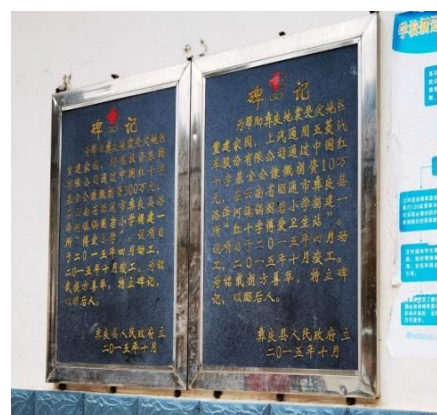 碑记
为帮助彝良地震受灾地区
重建家园,
有限公司通过中国红十字
基金会慷慨捐资300万元,
在云南省昭通市彝良县
洛泽河镇锅圈岩小学捐建一
所“博爱小学”。该项目
于二0一五年四月动工,
二0一五年十月竣工。为铭
载捐方善举,特立碑记,
以昭后人。
彝良县人民政府 立
二0一五年十月
碑记
为帮助彝良地震受灾地区
重建家园,上汽通用五菱汽
车股份有限公司通过中国红
十字基金会慷慨捐资10万
元,在云南省昭通市彝良县
洛泽河镇锅圈岩小学捐建一
所“红十字博爱卫生站”。
该项目于二0一五年四月动
工,二0一五年十月竣工。
为铭载捐方善举,特立碑
记,以昭后人。
彝良县人民政府 立
二0一五年十月
学校新冠